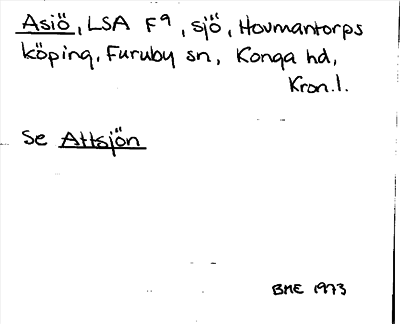 Asiö, LSA F9, sjö, Hovmantorps
köping, Furuby sn, Konga hd,
Kron.l.
Se Attsjön
BME 1973